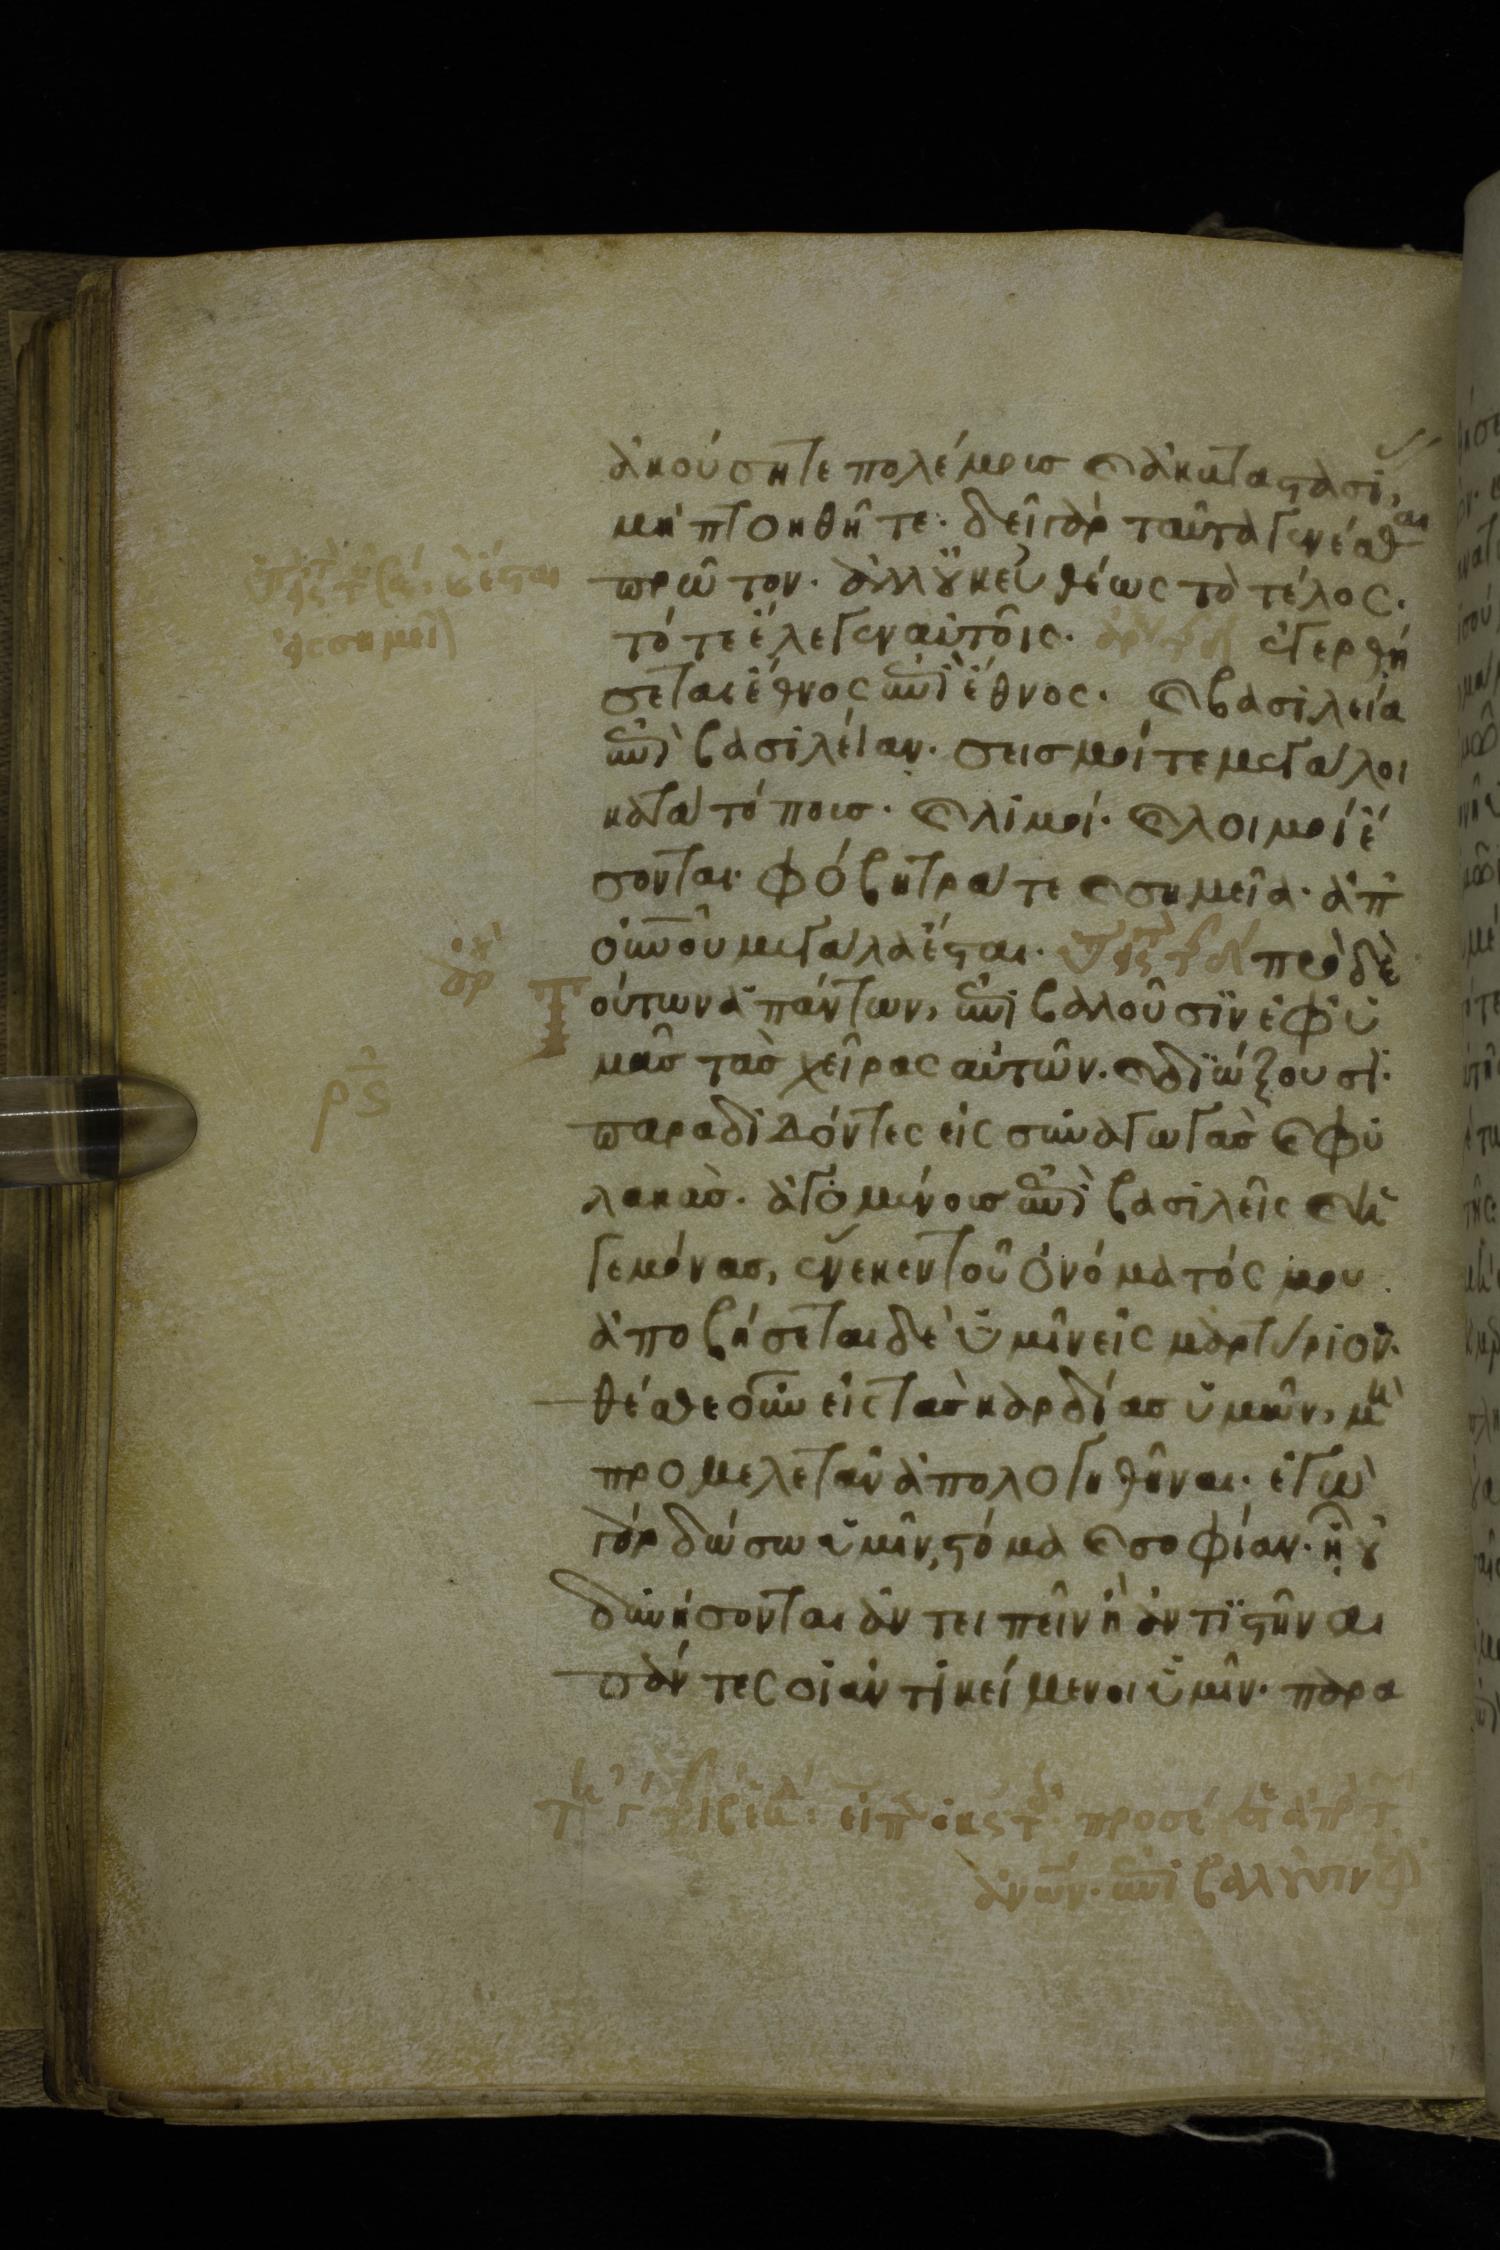 ἀκούσητε πολέμους κ ἀκαταστασί,
μὴ πτοηθῆτε· δεῖ γὰρ ταῦτα γενέσθαι
πρῶτον. ἀλλ οὐκ εὐθέως τὸ τέλος.
τότε ἔλεγεν αὐτοῖς. ἐγερθή
σεται ἔθνος ἐπὶ ἔθνος. κ βασιλεία
ἐπὶ βασιλείαν. σεισμοί τε μεγάλοι
κατὰ τόπους. κ λιμοί. κ λοιμοὶ ἔ
σονται. φόβητρά τε κ σημεῖα. ἀπ
οὐνοῦ μεγάλα ἔσται. πρὸ δὲ
Τούτων ἁπάντων, ἐπιβαλοῦσϊν ἐφ ὑ
μᾶς τὰς χεῖρας αὐτῶν. κ διώξουσϊ.
παραδιδόντες εἰς συναγωγὰς κ φυ
ρξ
λακὰς. ἀγομένους ἐπὶ βασιλεῖς κ ἡ
γεμόνας, ἕνεκεν τοῦ ὀνόματός μου
ἀποβήσεται δὲ ὑμῖν εἰς μαρτύριον.
θέσθε οὖν εἰς τὰς καρδίας ὑμῶν, μὴ
προμελετᾶν ἀπολογηθῆναι. ἐγὼ
γὰρ δώσω ὑμῖν, στόμα κ σοφίαν. ᾗ οὐ
δυνήσονται ἀντειπεῖν ἢ ἀντϊστῆναι
πάντες οἱ ἀντικείμενοι ὑμῖν. παρα
ἀνων. ἐπιβαλουσιν